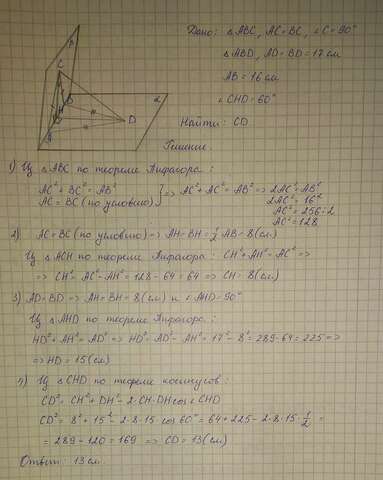 Дано: △ABC, AC=BC, ∠C=90°
△ABD, AD=BD=17см
AB=16см
∠CHD=60°
Найти: CD
Решение
β
C
α
B
H
D
A
1) Из △ABC по теореме Пифагора:
AC²+BC²=AB²
AC=BC (по условию) } => AC²+AC²=AB² => 2AC²=AB²
2AC²=16²
AC²=256:2
AC²=128
2) AC=BC (по условию) => AH=BH=1/2 AB=8(см)
Из △ACH по теореме Пифагора: CH²+AH²=AC² =>
=> CH²=AC²-AH²=128-64=64 => CH=8(см)
3) AD=BD => AH=BH=8(см) и ∠AHD=90°
Из △AHD по теореме Пифагора:
HD²+AH²=AD² => HD²=AD²-AH²=17²-8²=289-64=225 =>
=> HD=15(см)
4) Из △CHD по теореме косинусов:
CD²=CH²+DH²-2·CH·DHcos∠CHD
CD²=8²+15²-2·8·15 cos60°=64+225-2·8·15·1/2=
=289-120=169 => CD=13(см)
Ответ: 13см.